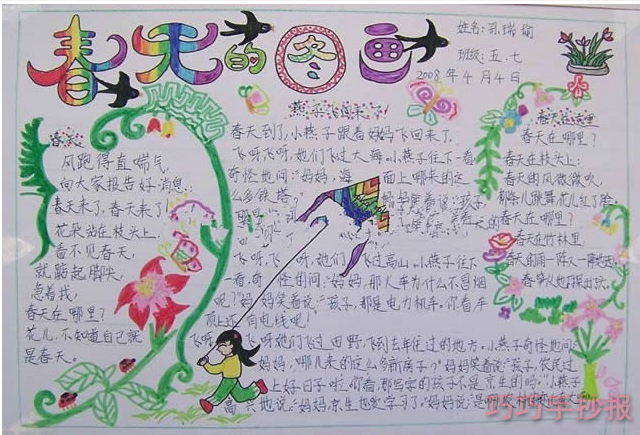 春天的图画
姓名:孙瑞瑜
班级:五.七
2008年4月4日
春天
风跑得直喘气,
向大家报告好消息:
春天来了,春天来了!
花朵站在枝头上,
看不见春天,
就踮起脚尖,
急着找,
春天在哪里?
花儿,不知道自己就
是春天。
燕子飞回来了!
春天到了,小燕子跟着妈妈飞回来了。
飞呀飞呀,她们飞过大海。小燕子往下一看
奇怪地问:"妈妈,海 面上哪来的这
么多铁塔? 妈妈笑着说:"孩子,
飞呀,飞 呀,她们 飞过高山。小燕子往下
一看,奇 怪的问:"妈妈,那火车为什么不冒烟
呢?"妈妈笑着说:"孩子,那是电力机车。你看车
顶上还 有电线呢!"
飞呀, 飞呀她们飞过田野,飞到去年住过的地方。小燕子奇怪地问:
妈妈,哪儿来的这么多新房子?"妈妈笑着说:"孩子,农民过
上好日子啦。你看,那写字的孩子不是京生的吗?"小燕子
高兴地说:"妈妈,京生也爱学习了。"妈妈说:"是
春天在哪里
春天在哪里?
春天在枝头上:
春天的风微微吹,
柳条儿跳舞,花儿红了脸。
春天在哪里?
春天在竹林里:
春天的雨一阵又一阵地
春笋从地下探出头。
巧巧手抄报